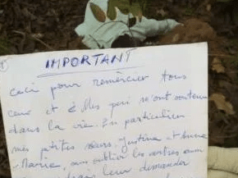 IMPORTANT
Ceci pour remercier tous
ceux et celles qui m'ont soutenu
dans la vie. En particulier
mes petites sœurs, Justine et
Maria, sans oublier les autres
leur demander